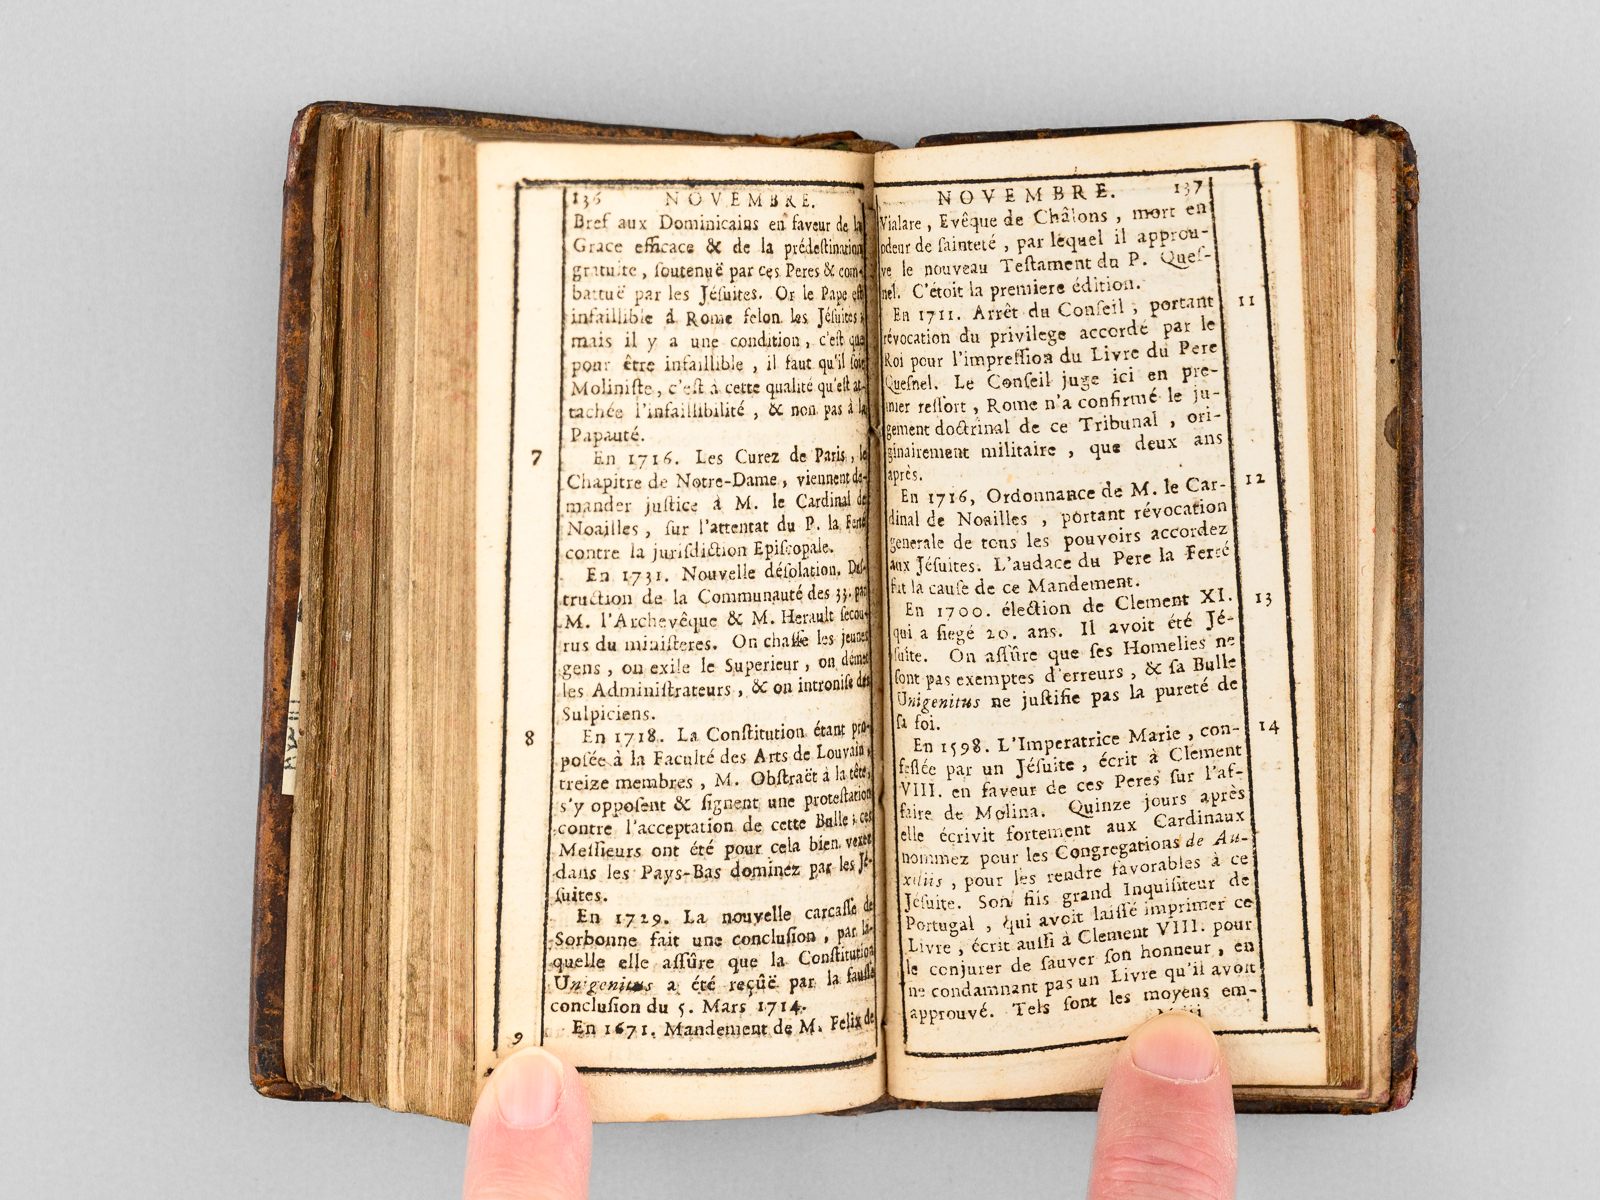 136 NOVEMBRE.
Bref aux Dominicains en faveur de la
Grace efficace & de la prédeſtination
gratuite, ſoutenuë par ces Peres & com-
battuë par les Jéſuites. Or le Pape eſt
infaillible à Rome ſelon les Jéſuites;
mais il y a une condition, c'eſt que
pour être infaillible, il faut qu'il ſoit
Moliniſte, c'eſt à cette qualité qu'eſt at-
tachée l'infaillibilité, & non pas à la
Papauté.
7 En 1716. Les Curez de Paris, le
Chapitre de Notre-Dame, viennent de-
mander juſtice à M. le Cardinal de
Noailles, ſur l'attentat du P. la Ferté
contre la juriſdiction Epiſcopale.
En 1731. Nouvelle déſolation. Deſ-
truction de la Communauté des 33. par
M. l'Archevêque & M. Herault ſecou-
rus du miniſteres. On chaſſe les jeunes
gens, on exile le Superieur, on démet
les Adminiſtrateurs, & on introniſe des
Sulpiciens.
8 En 1718. La Conſtitution étant pro-
poſée à la Faculté des Arts de Louvain,
treize membres, M. Obſtraët à la tête,
s'y oppoſent & ſignent une proteſtation
contre l'acceptation de cette Bulle; ces
Meſſieurs ont été pour cela bien vexez
dans les Pays-Bas dominez par les Jé-
ſuites.
En 1729. La nouvelle carcaſſe de
Sorbonne fait une concluſion, par la-
quelle elle aſſûre que la Conſtitution
Unigenitus a été reçûë par la fauſſe
concluſion du 5. Mars 1714.
9 En 1671. Mandement de M. Felix de
NOVEMBRE. 137
Vialare, Evêque de Châlons, mort en
odeur de ſainteté, par lequel il approu-
ve le nouveau Teſtament du P. Queſ-
nel. C'étoit la premiere édition.
En 1711. Arrêt du Conſeil, portant 11
révocation du privilege accordé par le
Roi pour l'impreſſion du Livre du Pere
Queſnel. Le Conſeil juge ici en pre-
mier reſſort, Rome n'a confirmé le ju-
gement doctrinal de ce Tribunal, ori-
ginairement militaire, que deux ans
après.
En 1716, Ordonnance de M. le Car- 12
dinal de Noailles, portant révocation
generale de tous les pouvoirs accordez
aux Jéſuites. L'audace du Pere la Ferté
fut la cauſe de ce Mandement.
En 1700. élection de Clement XI. 13
qui a ſiegé 20. ans. Il avoit été Jé-
ſuite. On aſſûre que ſes Homelies ne
ſont pas exemptes d'erreurs, & ſa Bulle
Unigenitus ne juſtifie pas la pureté de
ſa foi.
En 1598. L'Imperatrice Marie, con- 14
feſſée par un Jéſuite, écrit à Clement
VIII. en faveur de ces Peres ſur l'af-
faire de Molina. Quinze jours après
elle écrivit fortement aux Cardinaux
nommez pour les Congregations de Au-
xiliis, pour les rendre favorables à ce
Jéſuite. Son fils grand Inquiſiteur de
Portugal, qui avoit laiſſé imprimer ce
Livre, écrit auſſi à Clement VIII. pour
le conjurer de ſauver ſon honneur, en
ne condamnant pas un Livre qu'il avoit
approuvé. Tels ſont les moyens em-